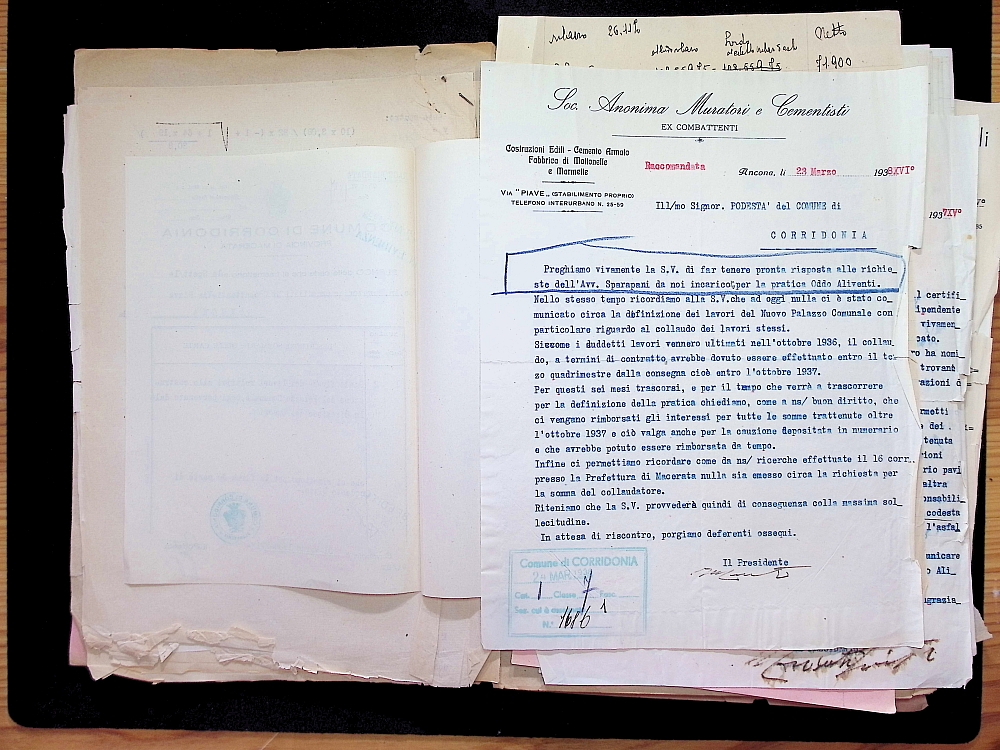 26.11%
Netto
71.900
Soc. Anonima Muratori e Cementisti
EX COMBATTENTI
Costruzioni Edili - Cemento Armato
Fabbrica di Mattonelle
e Marmette
VIA "PIAVE„ (STABILIMENTO PROPRIO)
TELEFONO INTERURBANO N. 25-59
Raccomandata
Ancona, li 23 Marzo 1938XVI°
Ill/mo Signor. PODESTA' del COMUNE di
CORRIDONIA
Preghiamo vivamente la S.V. di far tenere pronta risposta alle richie_
ste dell'Avv. Sparapani da noi incaricoper la pratica Oddo Aliventi.
Nello stesso tempo ricordiamo alla S.V.che ad oggi nulla ci è stato co_
municato circa la definizione dei lavori del Nuovo Palazzo Comunale con
particolare riguardo al collaudo dei lavori stessi.
Siccome i duddetti lavori vennero ultimati nell'ottobre 1936, il collau_
do, a termini di contratto avrebbe dovuto essere effettuato entro il ter_
zo quadrimestre dalla consegna cioè entro l'ottobre 1937.
Per questi sei mesi trascorsi, e per il tempo che verrà a trascorrere
per la definizione della pratica chiediamo, come a ns/ buon diritto, che
ci vengano rimborsati gli interessi per tutte le somme trattenute oltre
l'ottobre 1937 e ciò valga anche per la cauzione depositata in numerario
e che avrebbe potuto essere rimborsata da tempo.
Infine ci permettiamo ricordare come da ns/ ricerche effettuate il 16 corr.
presso la Prefettura di Macerata nulla sia emesso circa la richiesta per
la somma del collaudatore.
Riteniamo che la S.V. provvederà quindi di conseguenza colla massima sol_
lecitudine.
In attesa di riscontro, porgiamo deferenti ossequi.
Il Presidente
Comune di CORRIDONIA
24 MAR 1938
Cat. 1 Classe 7 Fasc.
N.° 1686
1937XV°
l certifi_
ipendente
vivamen_
cato.
ro ha nomi_
trovant
azioni d
rmetti
dei .
tenuta
ioni
rio pavi
altra
onsabili_
codesta
l'asfal
unicare
o Ali_
ngrazia_